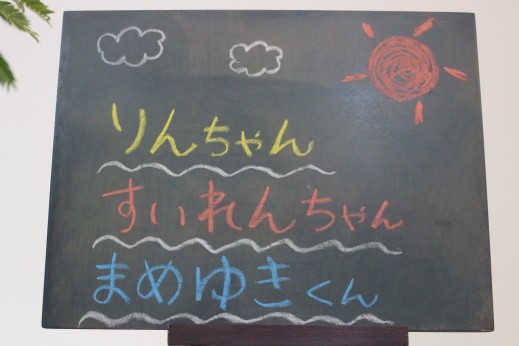 りんちゃん
すいれんちゃん
まめゆきくん